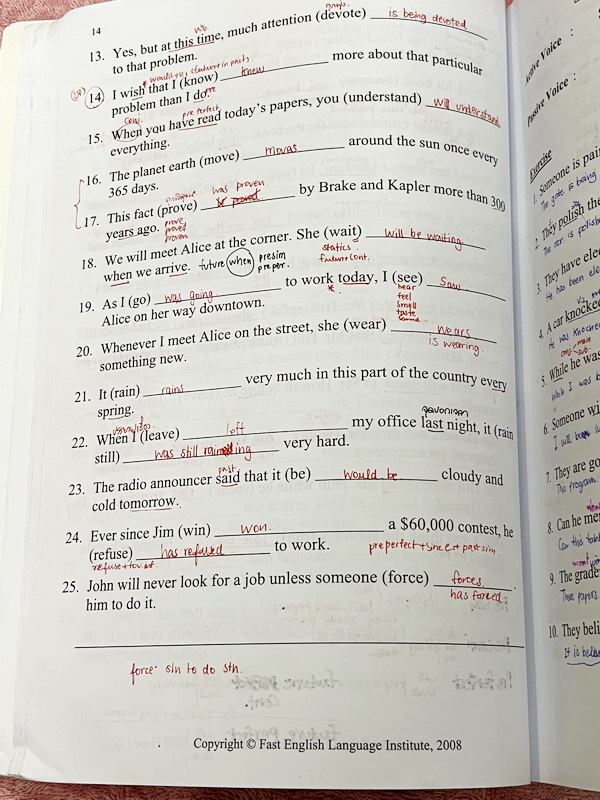 14
13. Yes, but at this time, much attention (devote) is being devoted
to that problem.
14. I wish that I (know) knew more about that particular
problem than I do.
15. When you have read today's papers, you (understand) will understand
everything.
16. The planet earth (move) moves around the sun once every
365 days.
17. This fact (prove) was proven by Brake and Kapler more than 300
years ago. prove
proved
proven
18. We will meet Alice at the corner. She (wait) will be waiting
when we arrive. future when
19. As I (go) was going to work today, I (see) saw
Alice on her way downtown.
hear
feel
smell
taste
20. Whenever I meet Alice on the street, she (wear) wears
something new. is wearing.
21. It (rain) rains very much in this part of the country every
spring.
22. When I (leave) left my office last night, it (rain
still) was still raining very hard.
past
23. The radio announcer said that it (be) would be cloudy and
cold tomorrow.
24. Ever since Jim (win) won a $60,000 contest, he
(refuse) has refused to work. pre perfect + since + past sim
25. John will never look for a job unless someone (force) forces.
him to do it. has forced
force sth to do sth.
Copyright © Fast English Language Institute, 2008
Active Voice :
Passive Voice :
Exercise
1. Someone is pai
The gate is being
2. They polish the
3. They have ele
He has been ele
4. A car knocke
5. While he was
while I was b
6. Someone wi
7. They are go
This program
8. Can he me
Can this tabl
9. The grade
These papers
10. They beli
It is belie